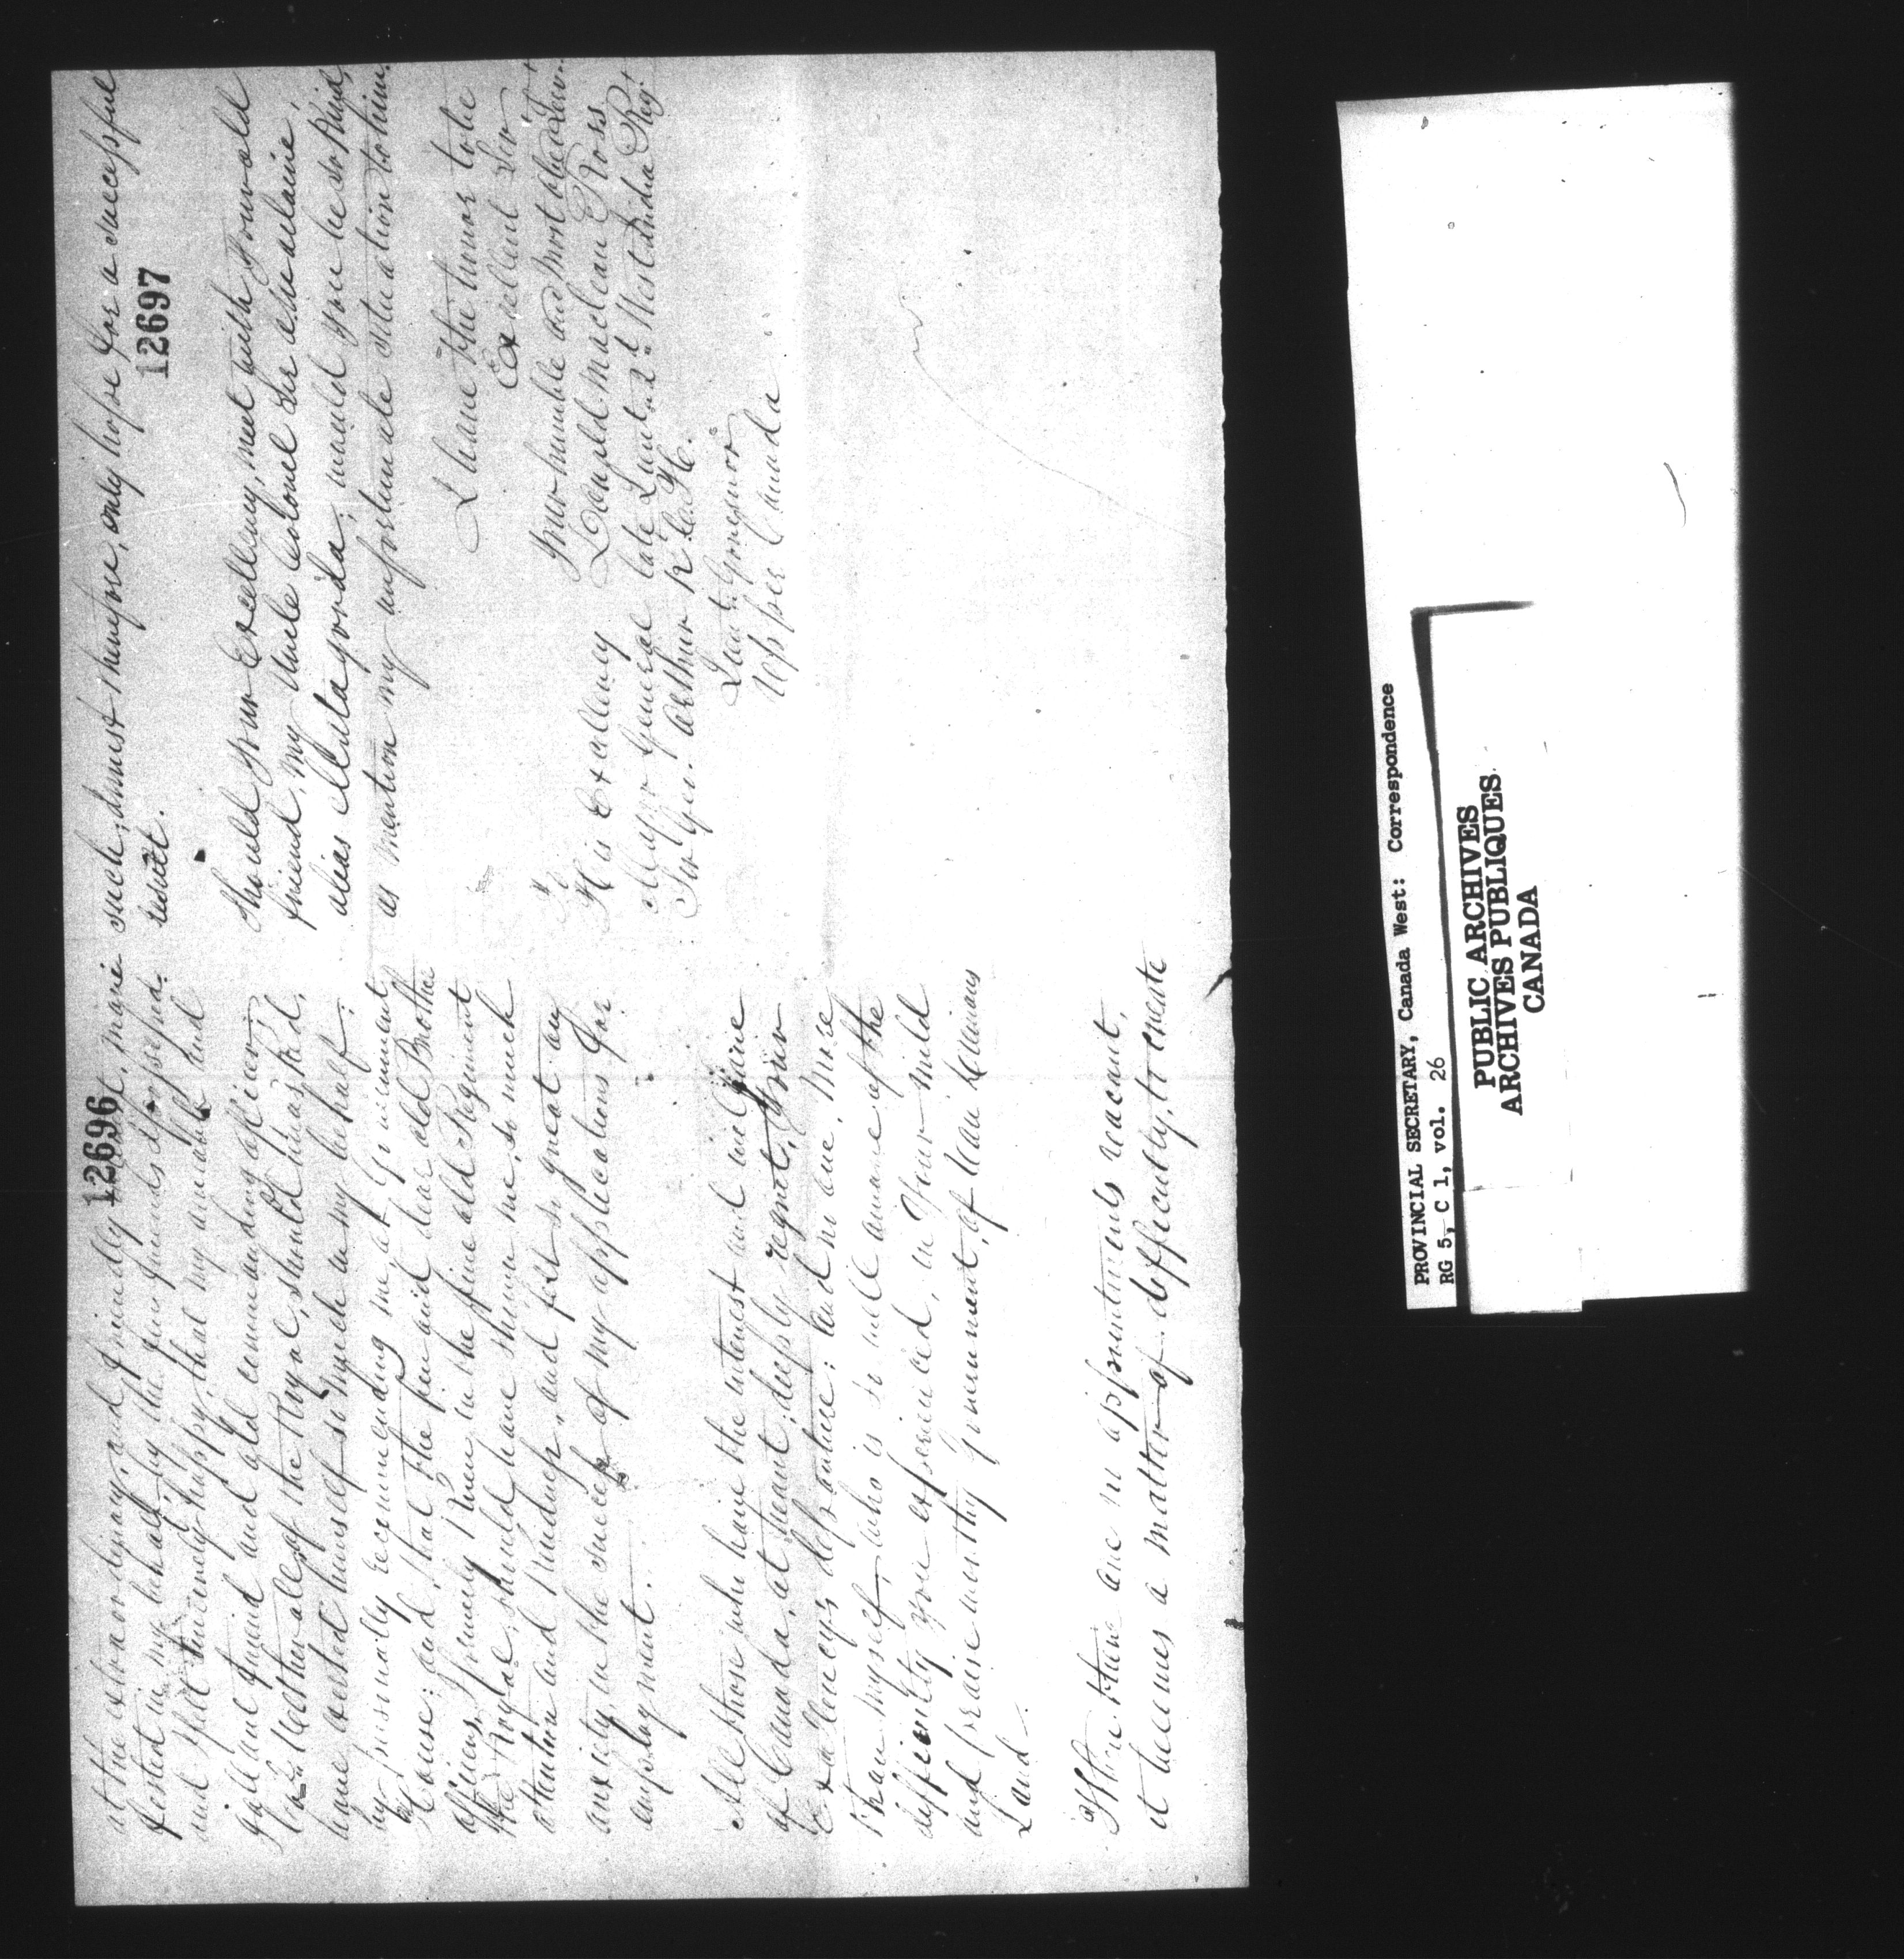 12696
at the extraordinary, and friendly
fested in my behalf, by the few friends I possessed:
and I felt sincerely happy, that my amiable and
gallant friend and old commanding officer,
Leatherall, of the Royal, should have asked,
have exerted himself so much in my behalf:
by personally recommending me, at Government
House: and that the fine and dear old Brother
officers, formerly known in the fine old Regiment
the Royal, should have shown me, so much
attention and kindness, and felt so great an
anxiety, in the success of my applications for
employment.
All those who have the interest and welfare
of Canada, at heart; deeply regret, Your
Excellency's departure: and no one, more
than myself, who is so well aware of the
difficulty you experienced, in Your mild
and praiseworthy Government, of
Land.
If there are no appointments vacant,
it becomes a matter of difficulty, to create
12697
such, I must therefore, only hope for a successful
result.
Should your Excellency, meet with your old
friend, my Uncle Colonel
alias would you be so kind,
as mention my unfortunate situation to him.
I have the honor to be
Excellent Sir
Your humble and most obed Serv
Donald Maclean Ross
late Lieut 2d West India Reg.
To
His Excellency
Major General
Sir Geo. Arthur K.
Lieut. Governor
Upper Canada
PROVINCIAL SECRETARY, Canada West: Correspondence
RG 5, C 1, vol. 26
PUBLIC ARCHIVES
ARCHIVES PUBLIQUES
CANADA